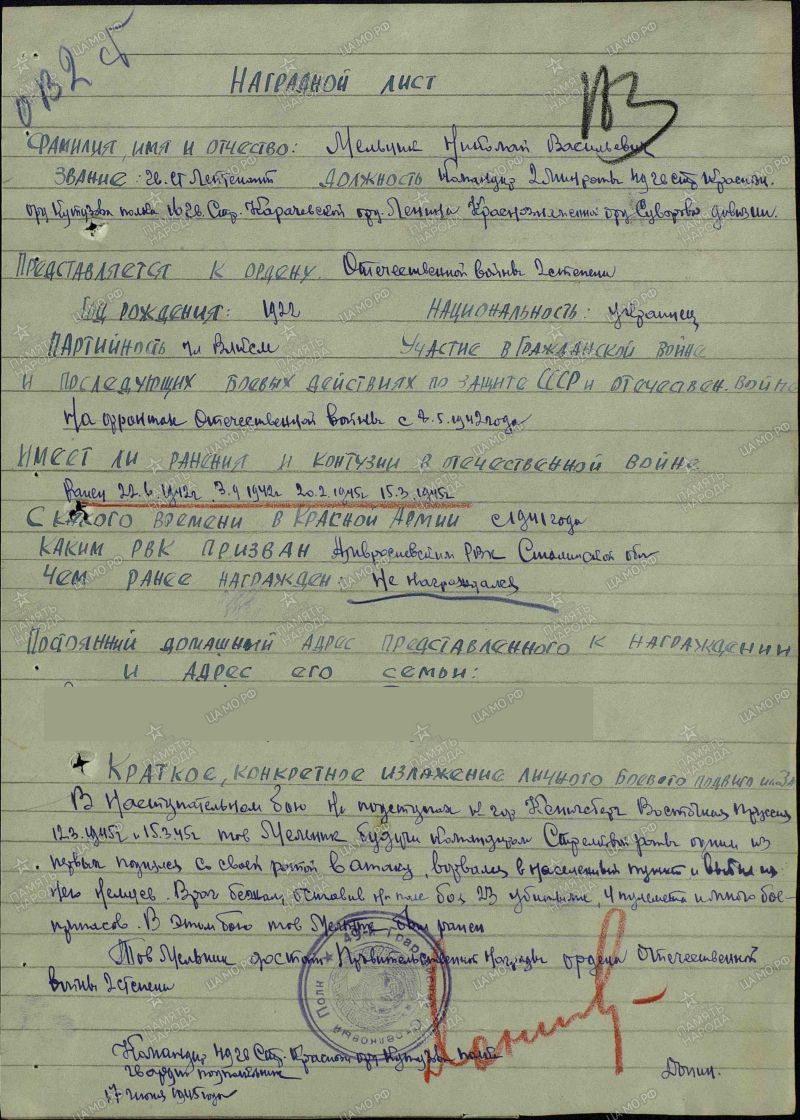 ОВ2 ст
НАГРАДНОЙ ЛИСТ
ФАМИЛИЯ, ИМЯ И ОТЧЕСТВО: Мельник Николай Васильевич
ЗВАНИЕ: Гв. Ст Лейтенант ДОЛЖНОСТЬ Командир 2 мин роты 49 гв стр Краснозн.
орд Кутузова полка 16 гв. Стр. Карачевской орд. Ленина Краснознаменной орд Суворова дивизии.
ПРЕДСТАВЛЯЕТСЯ К ОРДЕНУ Отечественной войны 2 степени
ГОД РОЖДЕНИЯ: 1922 НАЦИОНАЛЬНОСТЬ: украинец
ПАРТИЙНОСТЬ чл ВЛКСМ УЧАСТИЕ В ГРАЖДАНСКОЙ ВОЙНЕ
И ПОСЛЕДУЮЩИХ БОЕВЫХ ДЕЙСТВИЯХ ПО ЗАЩИТЕ СССР И ОТЕЧЕСТВЕН. ВОЙНЕ
На фронтах Отечественной войны с 2.5.1942 года
ИМЕЕТ ЛИ РАНЕНИЯ И КОНТУЗИИ В ОТЕЧЕСТВЕННОЙ ВОЙНЕ
Ранен 22.6.1942г. 3.9.1942г. 20.2.1945г. 15.3.1945г
С КАКОГО ВРЕМЕНИ В КРАСНОЙ АРМИИ с 1941 года
КАКИМ РВК ПРИЗВАН Амвросиевским РВК Сталинской обл
ЧЕМ РАНЕЕ НАГРАЖДЕН: Не награждался
ПОСТОЯННЫЙ ДОМАШНИЙ АДРЕС ПРЕДСТАВЛЕННОГО К НАГРАЖДЕНИЮ
И АДРЕС ЕГО СЕМЬИ:
КРАТКОЕ, КОНКРЕТНОЕ ИЗЛОЖЕНИЕ ЛИЧНОГО БОЕВОГО ПОДВИГА
В Наступательном бою на подступах к гор Кенигсберг Восточная Пруссия
12.3.1945г и 15.3.45г тов Мельник будучи командиром Стрелковой роты одним из
первых поднялся со своей ротой в атаку, ворвался в населенный пункт и выбил из
него немцев. Враг бежал, оставив на поле боя 23 убитыми, 4 пулемета и много бое-
припасов. В этом бою тов Мельник был ранен
Тов Мельник достоин Правительственной Награды ордена Отечественной
войны 2 степени
Командир 49 гв Стр. Красноз орд Кутузова полка
гвардии подполковник
17 июня 1945 года